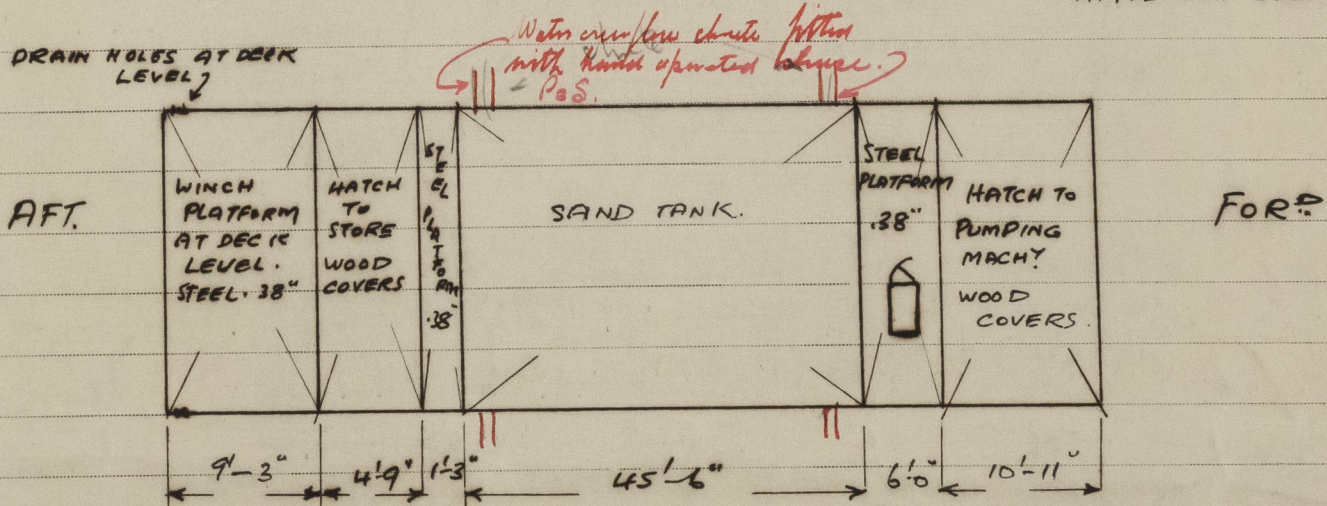 Water overflow chute fitted
with hand operated
P & S.
DRAIN HOLES AT DECK
LEVEL
AFT.
WINCH
PLATFORM
AT DECK
LEVEL.
STEEL .38"
HATCH
TO
STORE
WOOD
COVERS
STEEL PLATFORM .38"
SAND TANK.
STEEL
PLATFORM
.38"
HATCH TO
PUMPING
MACHY
WOOD
COVERS.
FORD
9'-3" 4'-9" 1'-3" 45'-6" 6'-0" 10'-11"